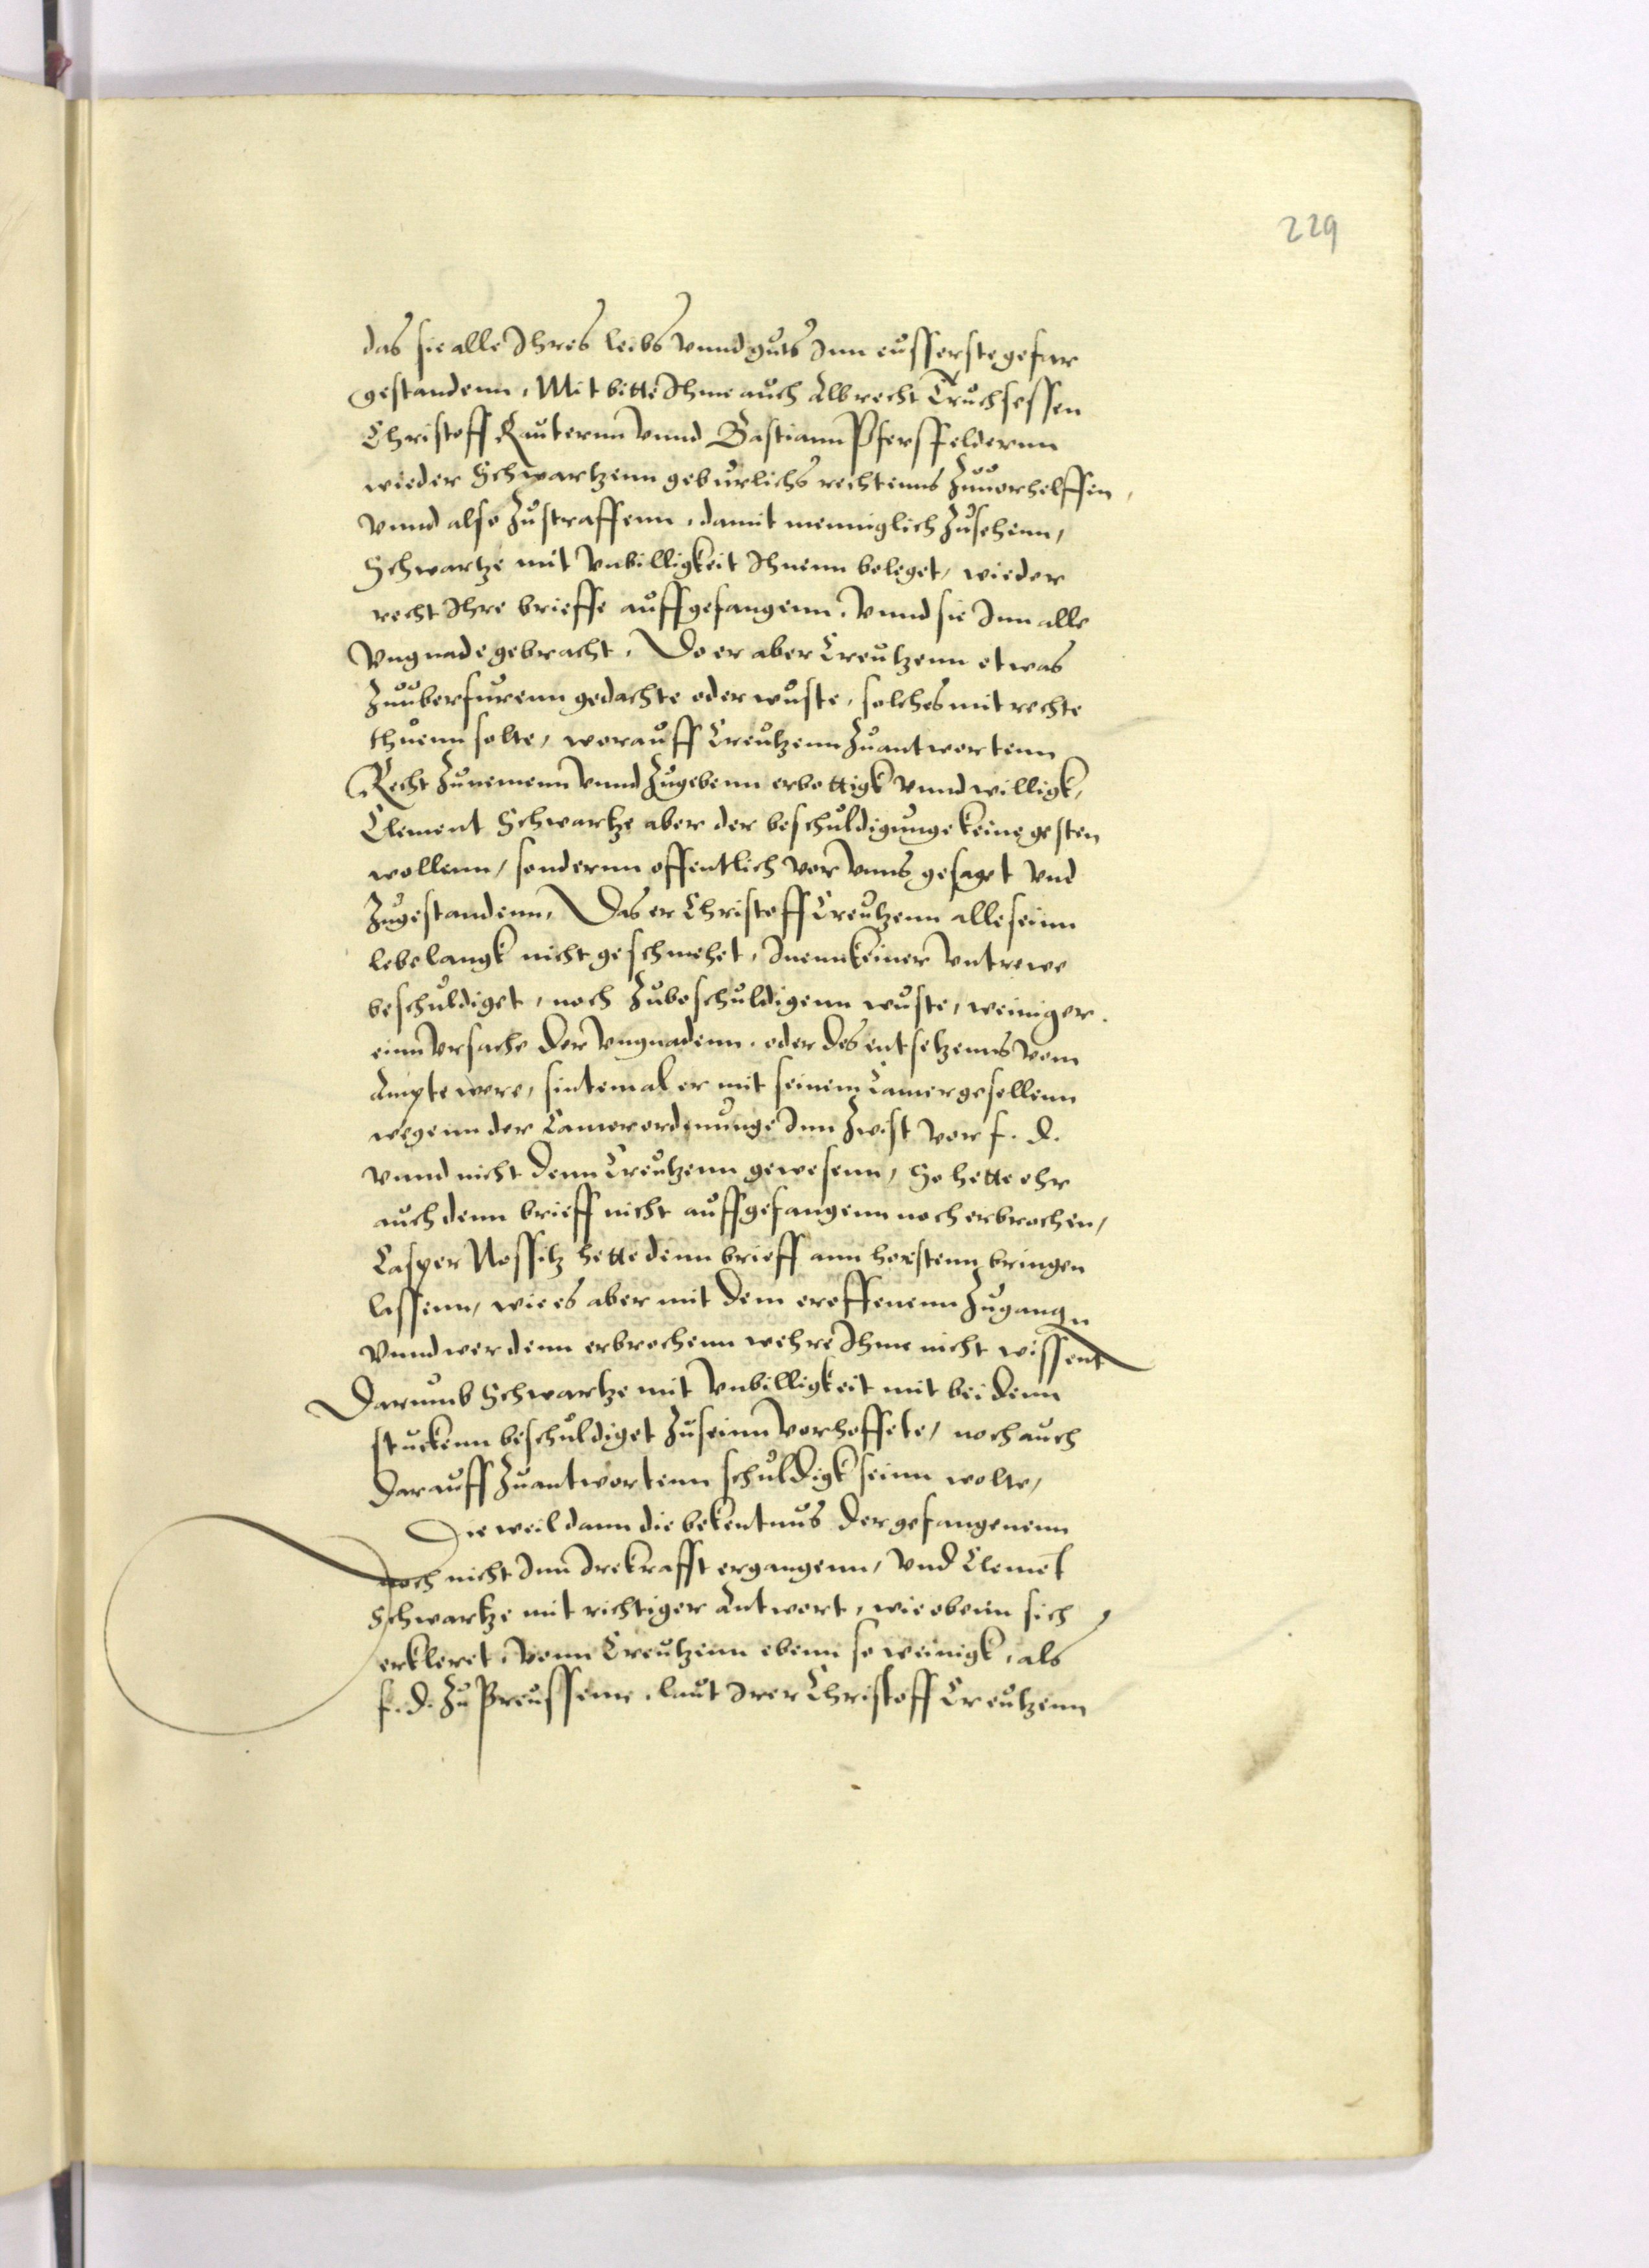 229
das sie alle Ihres leibs vnnd guts Inn eusserste gefar
gestandenn, Mit bitte Ihme auch Albrecht Truchsessen
Christoff Rauternn vnnd Bastiann Pfersfeldernn
wieder Schwartzenn geburlichs rechtenns Zuuorhelffen,
vnnd also Zustraffenn, damit menniglich Zusehenn,
Schwartze mit vnbilligkeit Ihnenn beleget, wieder
recht Ihre brieffe auffgefangenn, vnnd sie Inn alle
vngnade gebracht, Do er aber Creutzenn etwas
Zuuberfurenn gedachte oder wuste, solches mit rechte
thuenn solte, worauff Creutzenn Zuantwortenn
Recht Zunemenn vnnd Zugebenn erbottigk vnnd willigk,
Clement Schwartze aber der beschuldigunge keine gesten
wollenn, sondernn offentlich vor vnns gesaget vnd
Zugestandenn, Das er Christoff Creutzenn alle seinn
lebelangk nicht geschmehet, Inenn keiner vntrewe
beschuldiget, noch Zubeschuldigenn wuste, weiniger
einn vrsache der vngnadenn, oder des entsetzenns vom
Ampte were, sintemal er mit seinem Camergesellenn
wegenn der Camerordnunge Inn Zwist vor f. d.
vnnd nicht denn Creutzenn gewesenn, So hette ehr
auch denn brieff nicht auffgefangenn noch erbrochen,
Casper Nossitz hette denn brieff ann herstenn bringen
lassenn, wie es aber mit dem eroffenenn Zugangn
vnnd wer denn erbrochenn wehre Ihme nicht wissent
Darumb Schwartze mit vnbilligkeit mit beidenn
stuckenn beschuldiget Zuseinn vorhoffete, noch auch
darauff Zuantwortenn schuldigk seinn wolte,
Die weil dann die bekentnus der gefangenenn
noch nicht Inn Irekrafft ergangenn, vnd Clemet
Schwartze mit richtiger Antwort, wie obenn sich
erkleret, vonn Creutzenn ebenn so weinigk, als
f. d. Zu Preussenn, laut Irer Christoff Creutzenn